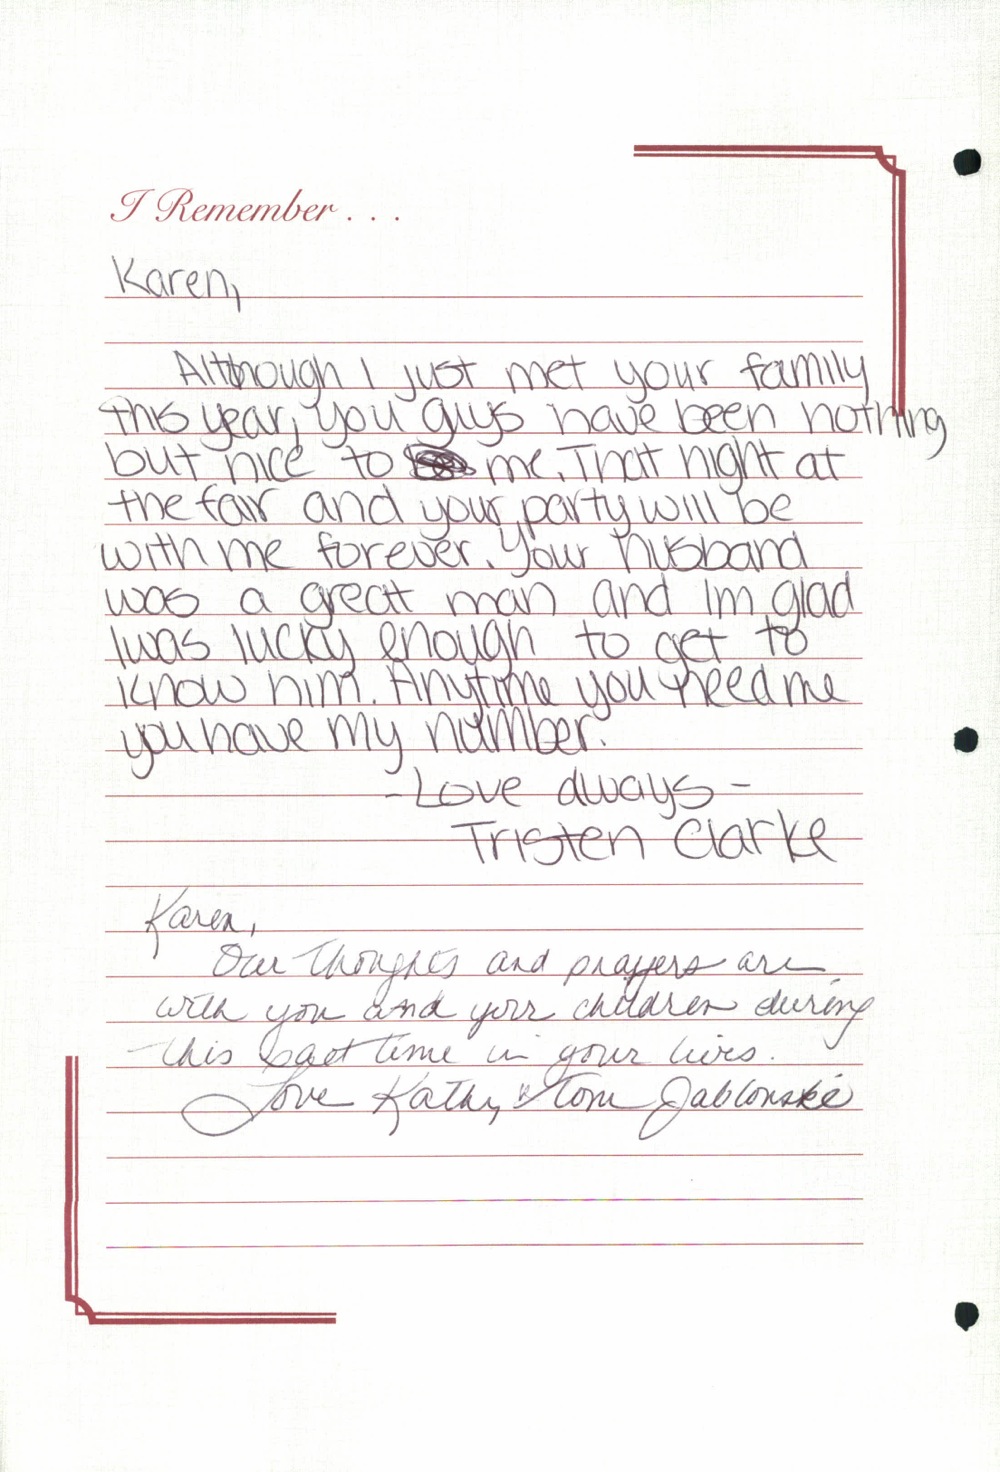 I Remember . . .
Karen,
Although I just met your family
this year, you guys have been nothing
but nice to me. That night at
the fair and your party will be
with me forever. Your husband
was a great man and Im glad
I was lucky enough to get to
know him. Anytime you need me
you have my number.
- Love always -
Tristen Clarke
Karen,
Our thoughts and prayers are
with you and your children during
this time in your lives.
Love Kathy & Tom Jablonski